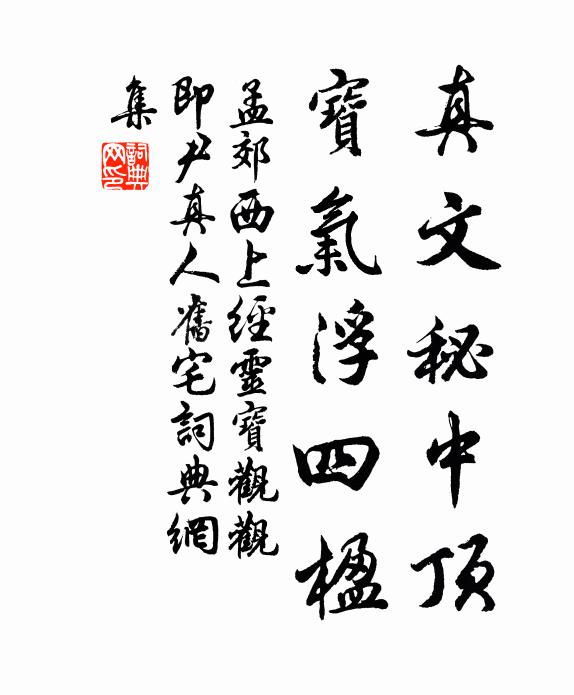 真文秘中頂
寶氣浮四楹
孟郊西上經靈寶觀觀
即尹真人舊宅詞典網
集
詞典
网印